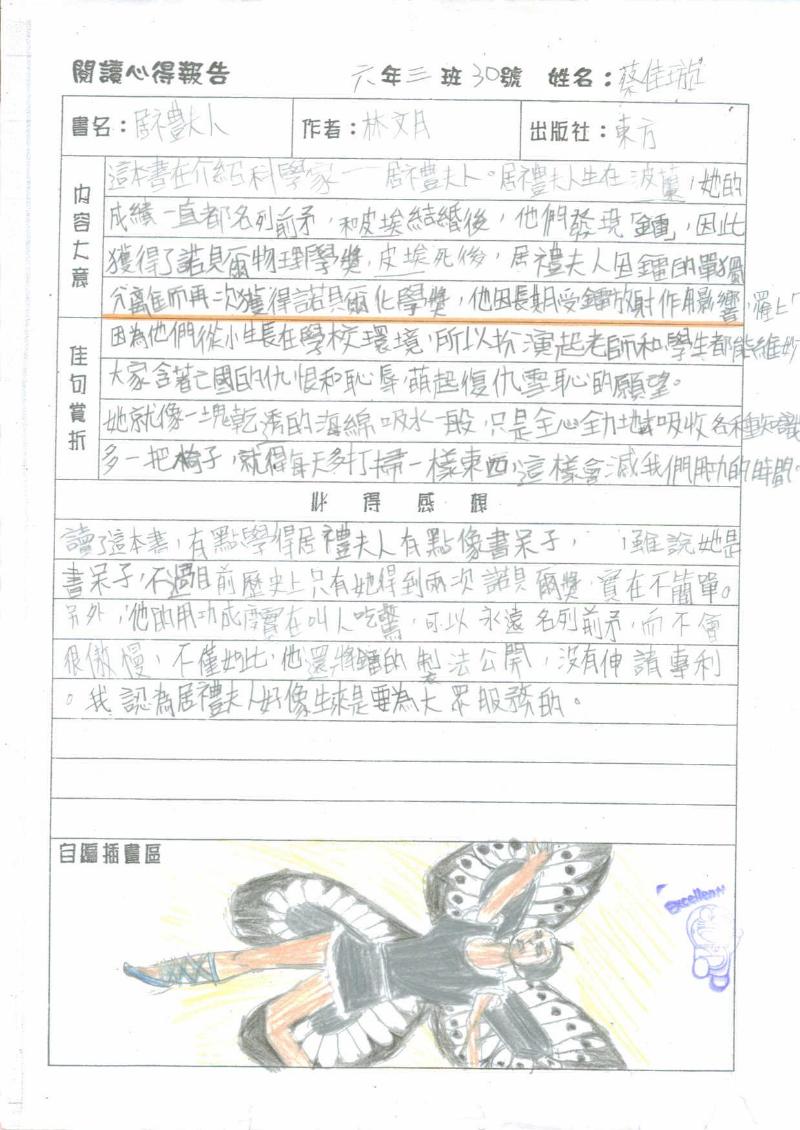 閱讀心得報告 六年三班30號 姓名：蔡佳璇
書名：居禮夫人 作者：林文月 出版社：東方
內容大意
這本書在介紹科學家——居禮夫人。居禮夫人生在波蘭，她的
成績一直都名列前矛，和皮埃結婚後，他們發現「鐳」，因此
獲得了諾貝爾物理學獎，皮埃死後，居禮夫人因鐳的單獨
分離而再次獲得諾貝爾化學獎，他因長期受鐳放射作用影響，
佳句賞析
因為他們從小生長在學校環境，所以扮演起老師和學生都能維妙
大家含著亡國的仇恨和恥辱，萌起復仇雪恥的願望。
她就像一塊乾透的海綿吸水一般，只是全心全力地吸收各種知識
多一把椅子，就得每天多打掃一樣東西，這樣會減我們用功的時間。
心得感想
讀了這本書，有點學得居禮夫人有點像書呆子，雖說她是
書呆子，不過目前歷史上只有她得到兩次諾貝爾獎，實在不簡單。
另外，他的用功成度實在叫人吃驚，可以永遠名列前矛，而不會
很傲慢，不僅如此，他還將鐳的製法公開，沒有伸請專利
。我認為居禮夫人好像生來是要為大眾服務的。
自編插畫區
Excellent